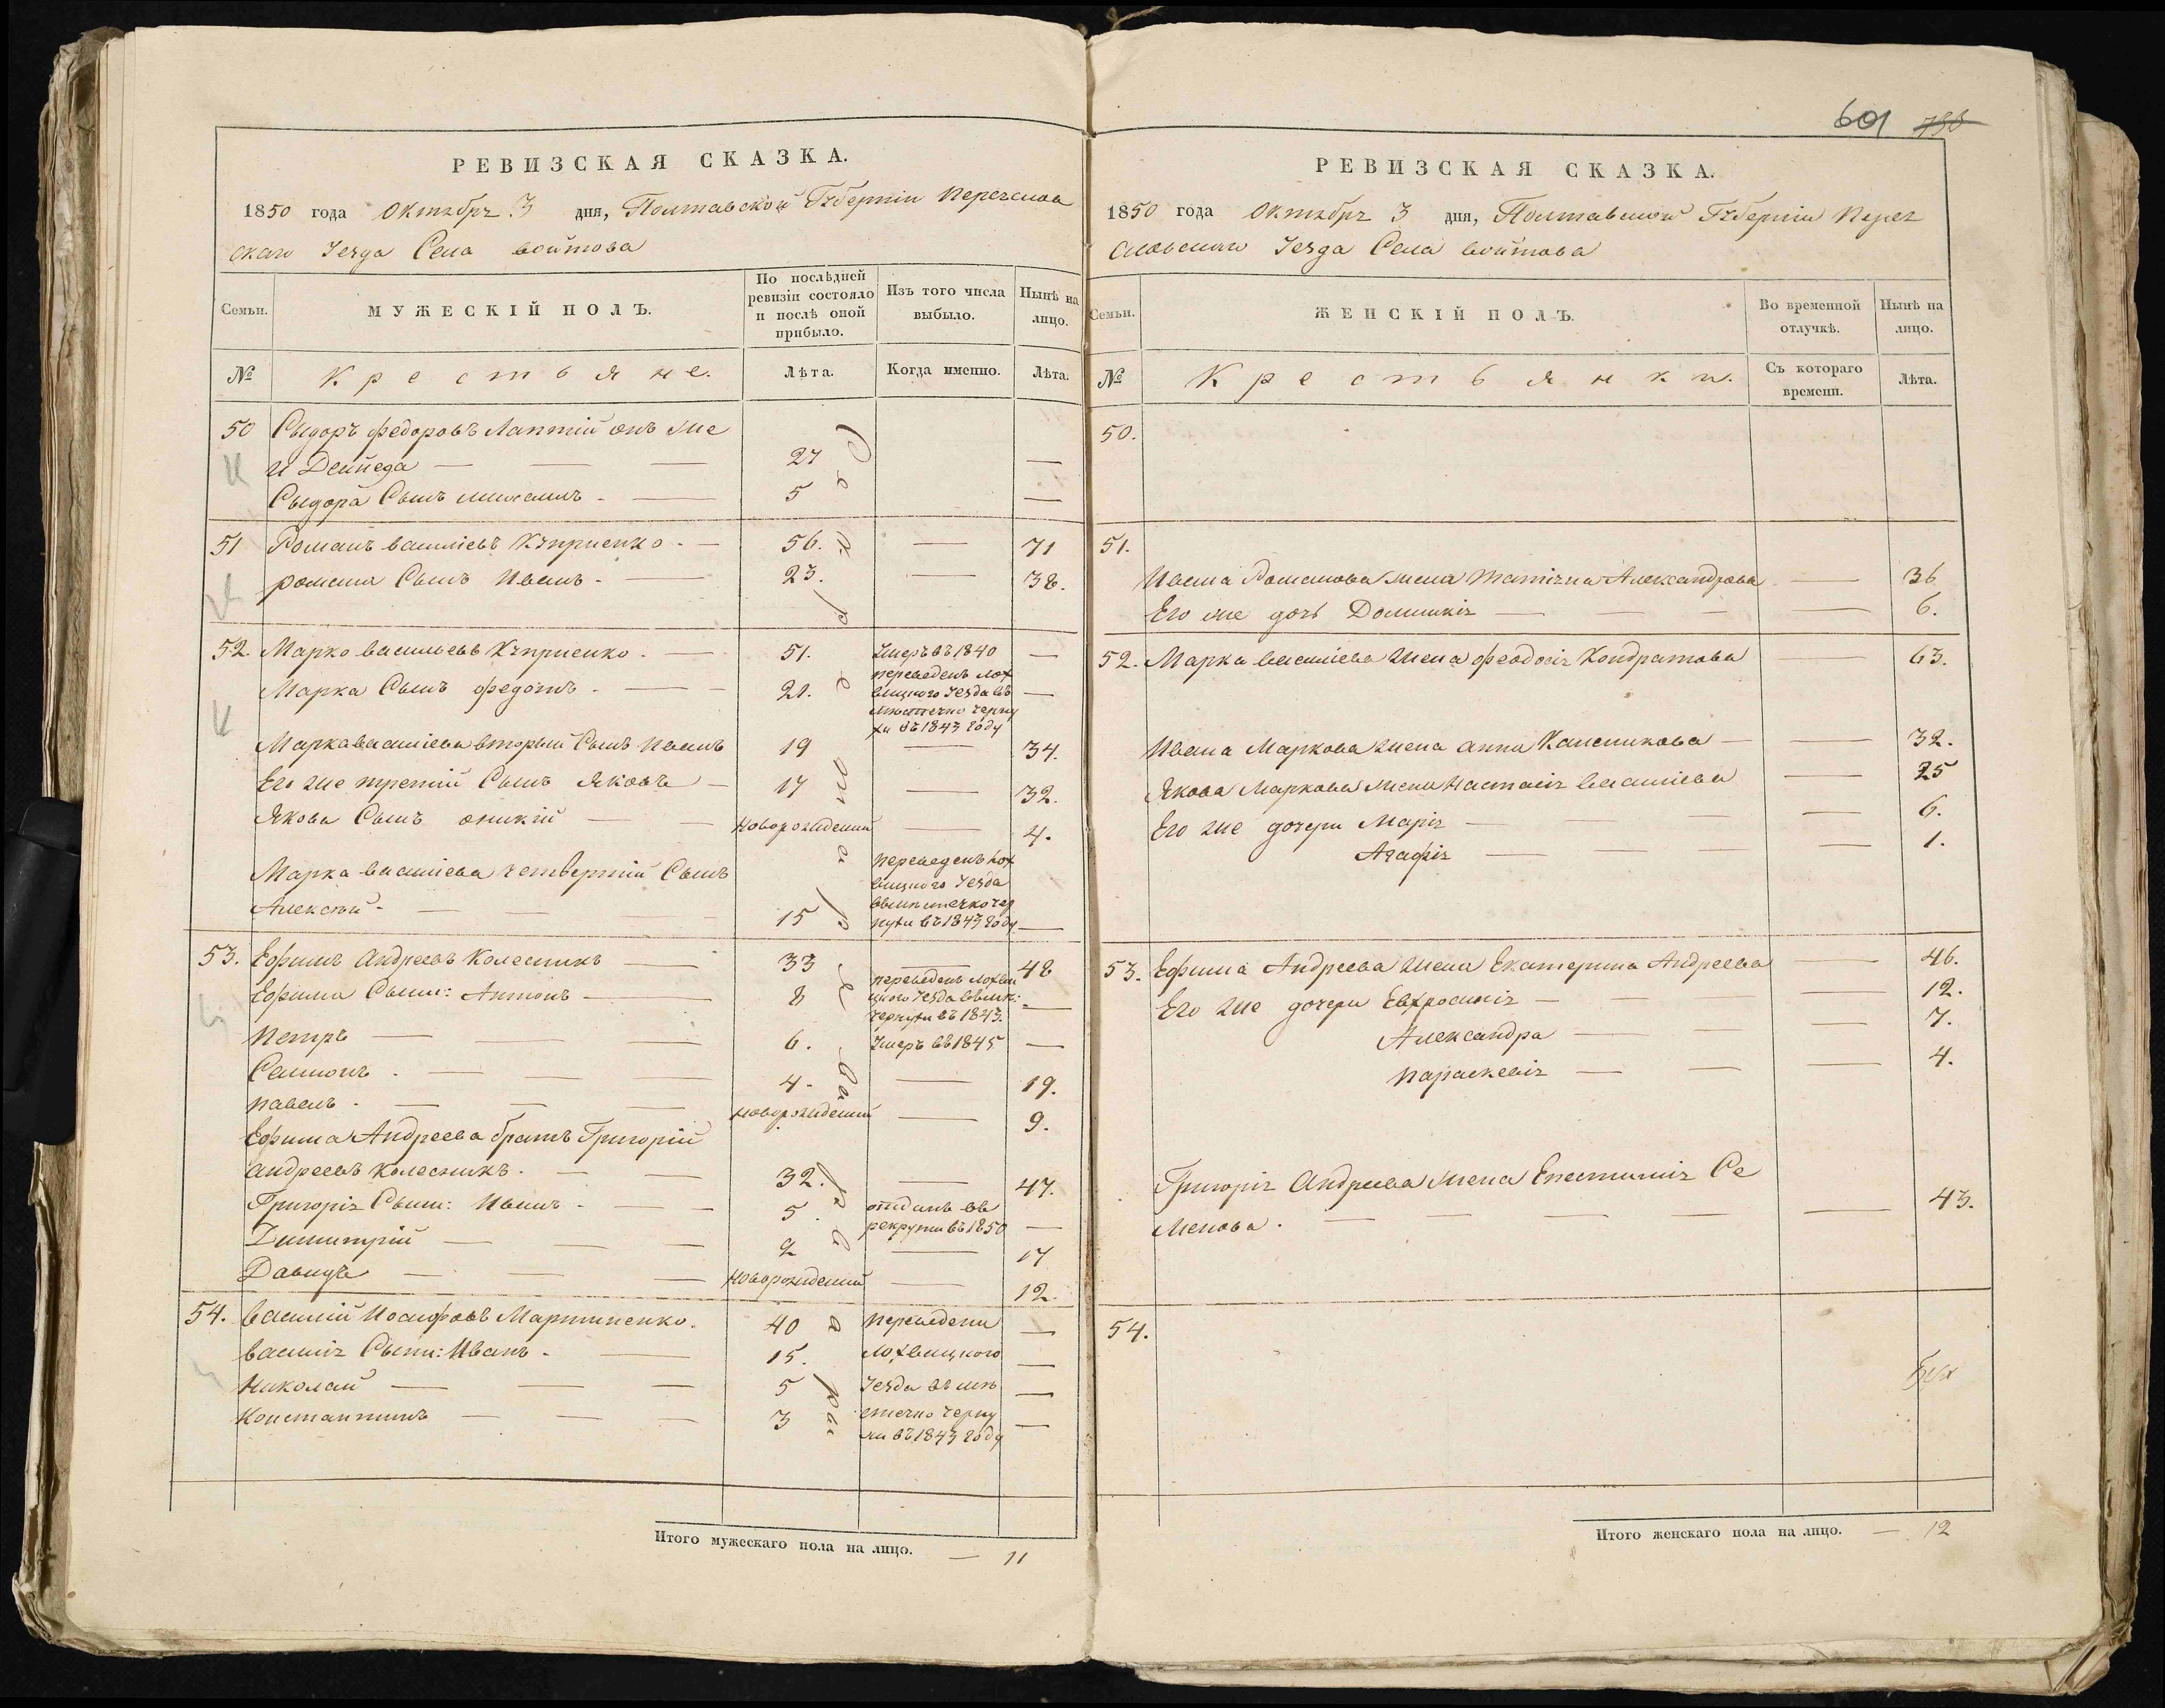 601 798
РЕВИЗСКАЯ СКАЗКА.
1850 года Октября 3 дня, Полтавской Губерніи Переяслов
скаго Уезда Села войтова
Семьи.
МУЖЕСКІЙ ПОЛЪ.
По послѣдней ревизіи состояло и послѣ оной прибыло.
Изъ того числа выбыло.
Нынѣ на лицо.
№ Крестьяне. Лѣта. Когда именно. Лѣта.
50 Сыдоръ федоровъ Лаптій онъ же
и Дейнеда — 27 —
Сыдора Сынъ михаилъ - 5 —
51 Романъ василіевъ Купріенко - 56. — 71
романа Сынъ Иванъ - 23. — 38.
52. Марко васильевъ Купріенко - 51. Умеръ въ 1840 —
Марка Сынъ федотъ - 21. переведенъ лох
вицкого Уезда въ —
местечко черну
хи въ 1843 году
Марка василіева вторый Сынъ Иванъ 19 — 34.
Его же третій Сынъ Яковъ — 17 — 32.
Якова Сынъ оникій — новорожденый — 4.
Марка василіева четвертій Сынъ переведенъ Лох
вицкого Уезда
Алексѣй - 15 въ местечко чер
нухи въ 1843 году —
53. Ефимъ Андреевъ Колесникъ — 33 — 48
Ефима Сыны: Антонъ — 8 переведенъ Лохви
цкого Уезда въ мѣс: —
чернухи въ 1843.
Петръ — 6. Умеръ въ 1845 —
Самионъ - 4. — 19.
павелъ - новорожденый — 9.
Ефима Андреева братъ Григорій
андреевъ колесникъ - 32. — 47.
Григорія Сыны: Иванъ - 5. отданъ въ
рекруты въ 1850 —
Димитрій — 2 — 17
Давидъ — новорожденый — 12.
54. василій Иосифовъ Мартиненко. 40 переведени —
василія Сыны: Иванъ - 15. Лохвицкого —
Николай — 5 Уезда въ мѣ —
Константинъ — 3 стечко черну —
хи въ 1843 году
Итого мужескаго пола на лицо. — 11
РЕВИЗСКАЯ СКАЗКА.
1850 года Октября 3 дня, Полтавской Губерніи Перея
словскаго Уезда Села войтова
Семьи.
ЖЕНСКІЙ ПОЛЪ.
Во временной отлучкѣ.
Нынѣ на лицо.
№ Крестьянки. Съ котораго времени. Лѣта.
50.
51.
Ивана Романова жена Татіяна Александрова — 36
Его же дочь Домникія — 6.
52. Марка василіева жена феодосія Кондратова — 63.
Ивана Маркова жена анна Калениκова — 32.
Якова Маркова жена Настасія василіева — 25
Его же дочери Марія — 6.
Агафія — 1.
53. Ефима Андреева жена Екатерина Андреева — 46.
Его же дочери Евфросинія — 12.
Александра — 7.
параскевія — 4.
Григорія Андреева жена Епестимия Се
менова - 43.
54.
Итого женскаго пола на лицо. — 12